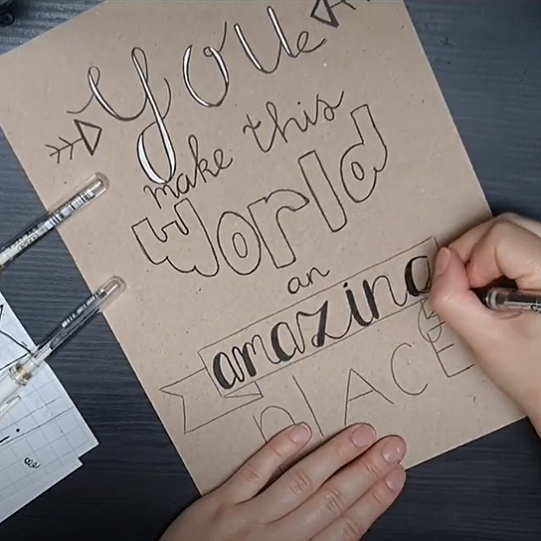 You
make this
world
an
amazing
PlACE